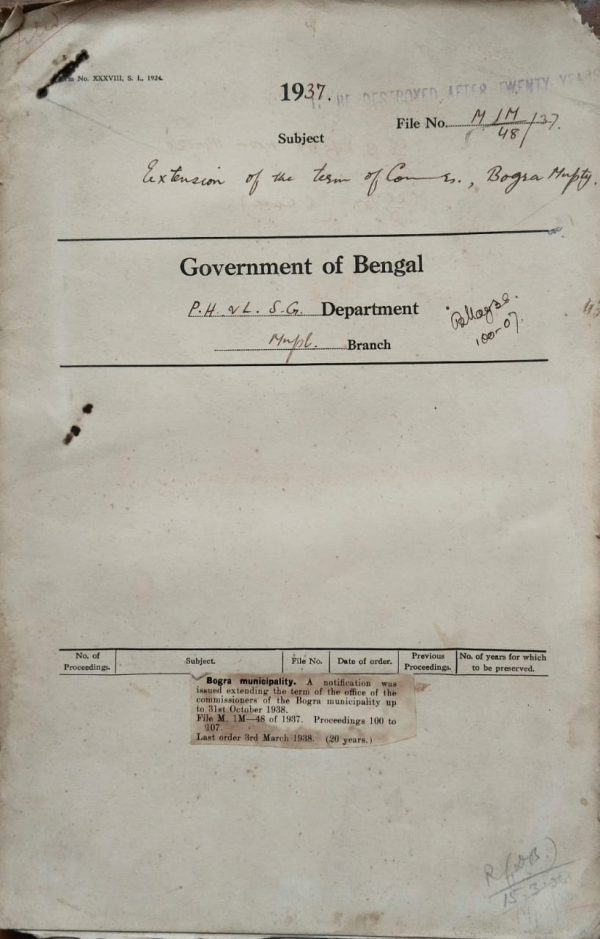 Filed
Form No. XXXVIII, S. I., 1924.
1937.
TO BE DESTROYED AFTER TWENTY YEARS
File No. M 1M/48/37.
Subject
Extension of the term of Comms., Bogra Mupty.
Government of Bengal
P.H. & L. S.G. Department
Mupl. Branch
100-07.
No. of Proceedings.
Subject.
File No.
Date of order.
Previous Proceedings.
No. of years for which to be preserved.
Bogra municipality. A notification was
issued extending the term of the office of the
commissioners of the Bogra municipality up
to 31st October 1938.
File M. 1M—48 of 1937. Proceedings 100 to
107.
Last order 3rd March 1938. (20 years.)